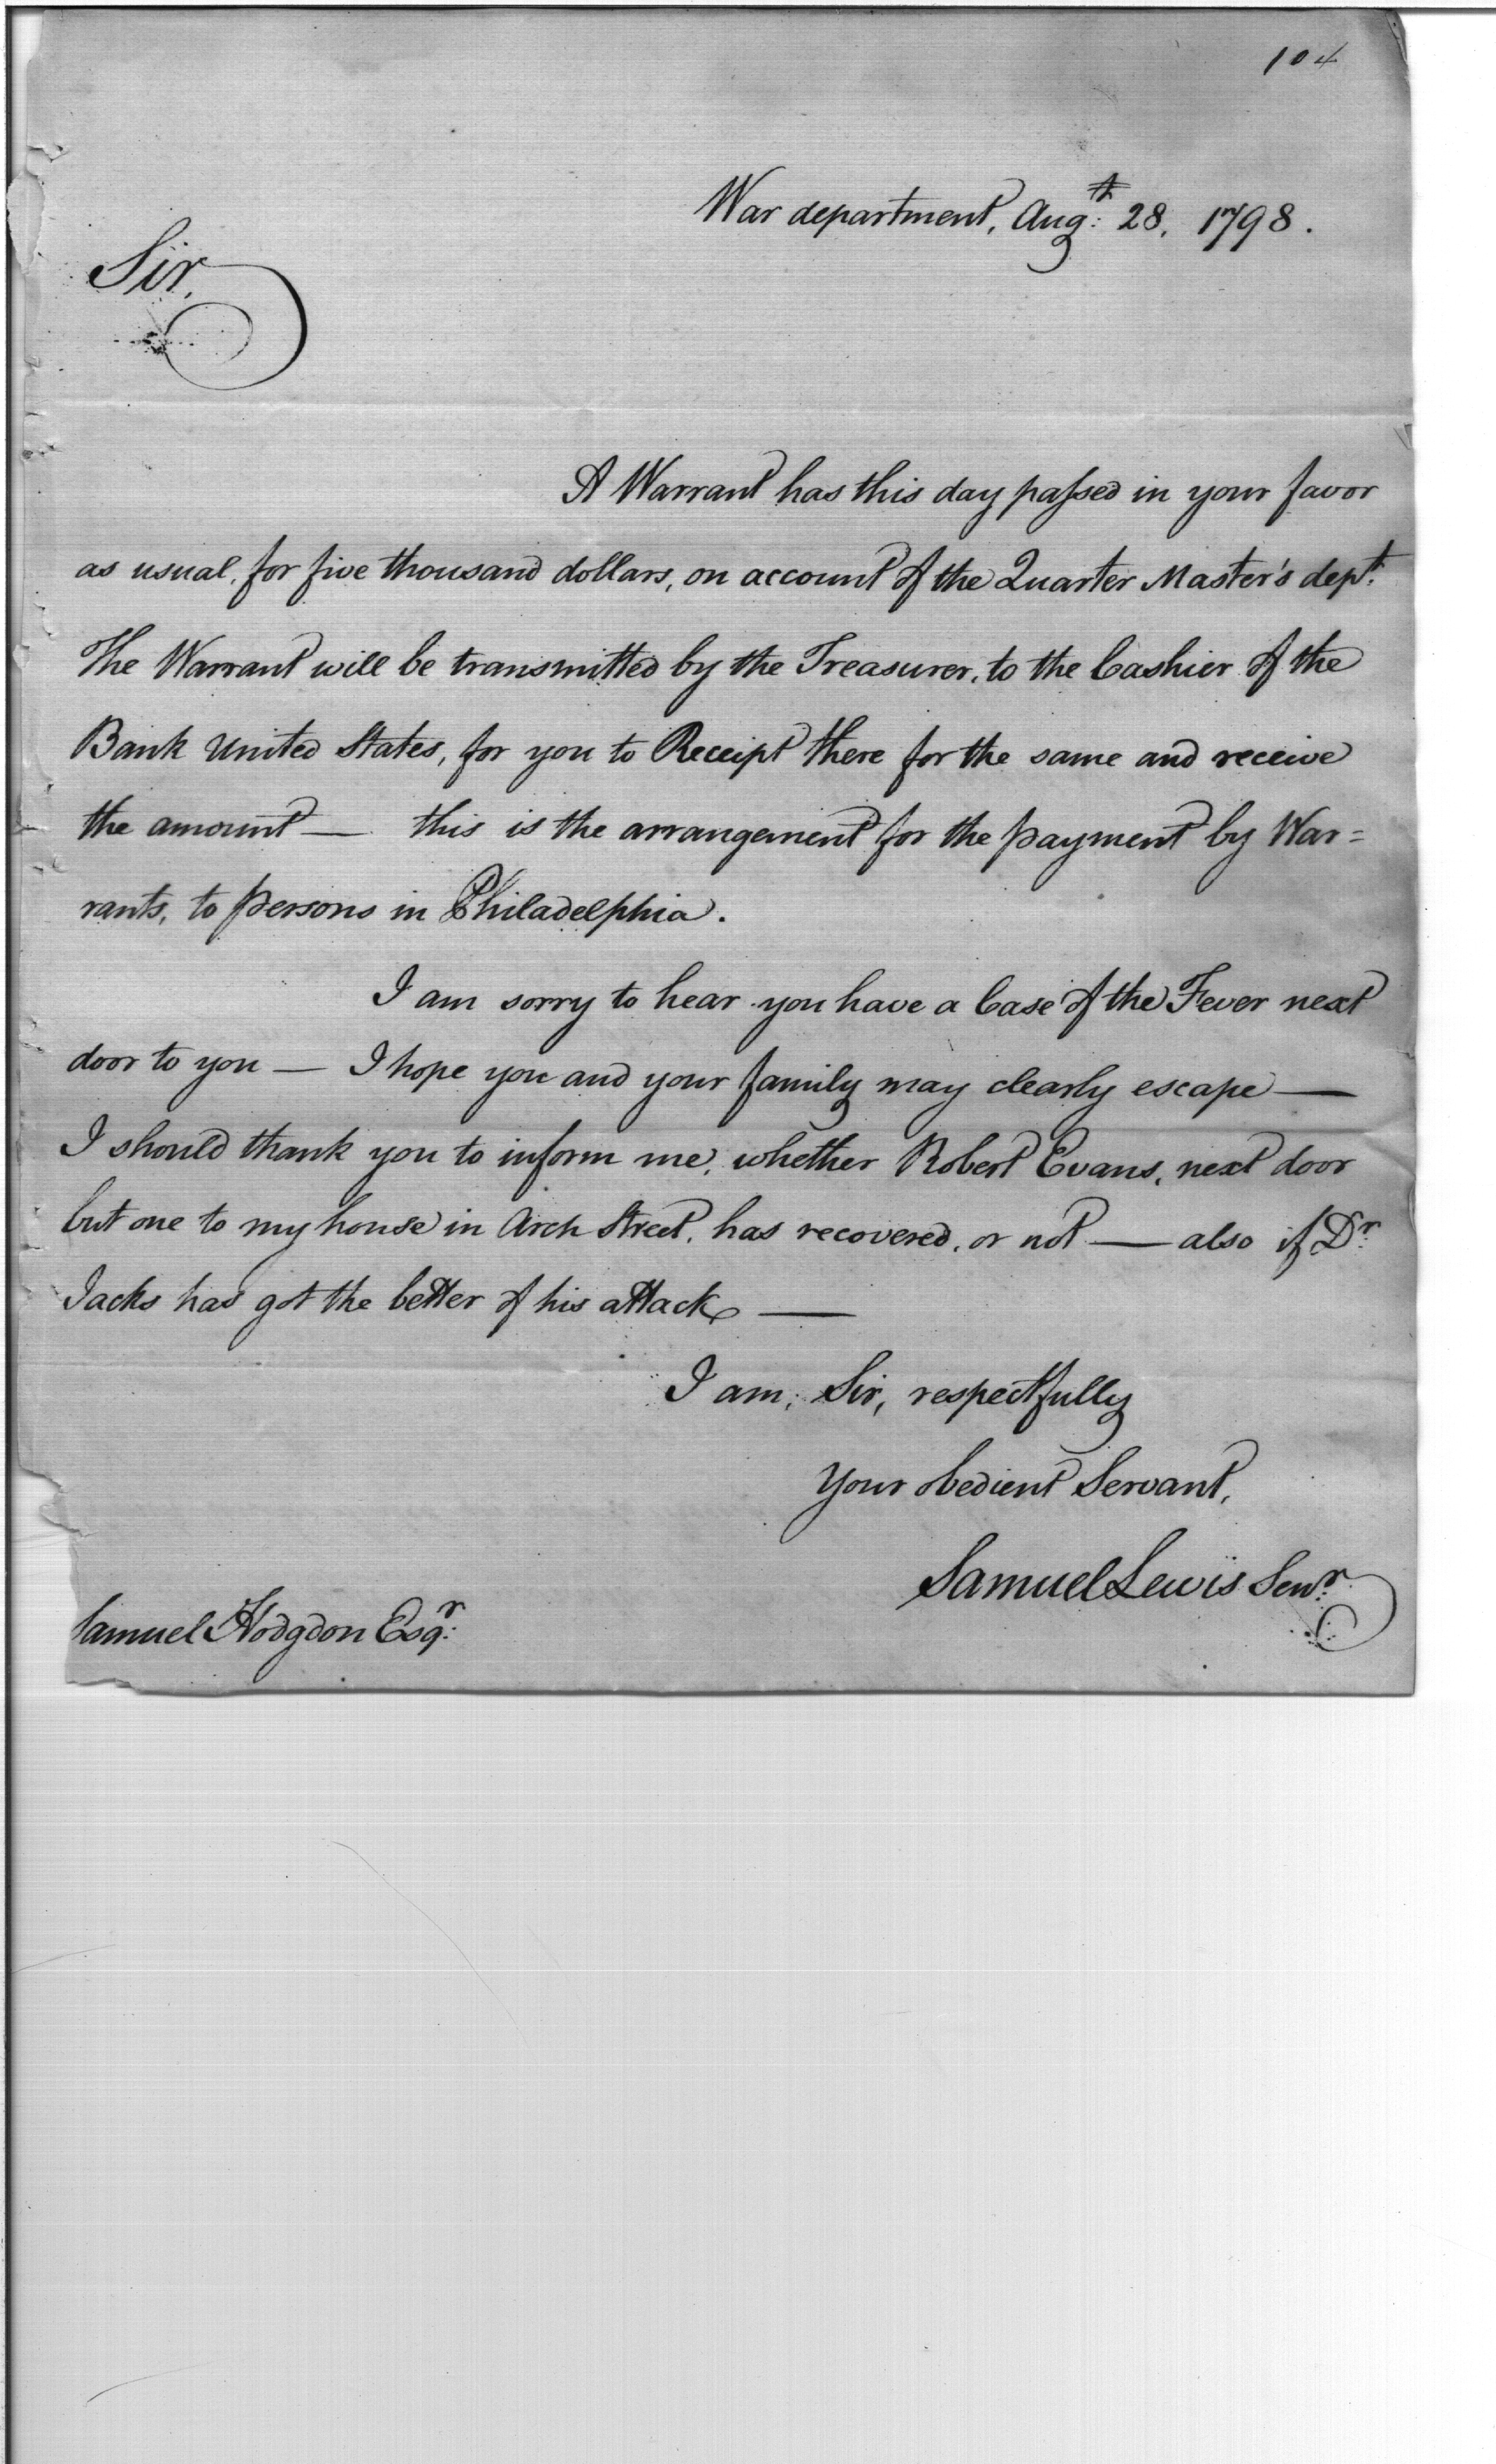 104
War department, Augt: 28, 1798.
Sir,
A Warrant has this day paſsed in your favor
as usual, for five thousand dollars, on account of the Quarter Master's dept.
The Warrant will be transmitted by the Treasurer, to the Cashier of the
Bank United States, for you to Receipt there for the same and receive
the amount — this is the arrangement for the payment by War=
rants, to persons in Philadelphia.
I am sorry to hear you have a Case of the Fever next
door to you — I hope you and your family may clearly escape —
I should thank you to inform me, whether Robert Evans, next door
but one to my house in Arch Street, has recovered, or not — also if Dr:
Jacks has got the better of his attack —
I am, Sir, respectfully
Your obedient Servant,
Samuel Lewis Senr:
Samuel Hodgdon Esqr: